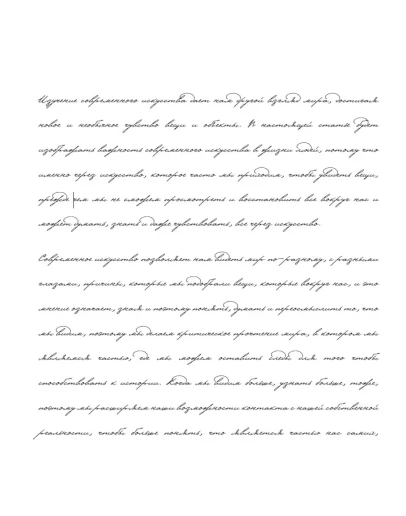 Изучение современного искусства дает нам другой взгляд мира, достигая
новое и необычное чувство вещи и объекты. В настоящей статье будет
изображать важность современного искусства в жизни людей, потому что
именно через искусство, которое часто мы приходим, чтобы увидеть вещи,
прежде чем мы не сможем просмотреть и восстановить все вокруг нас и
может думать, знать и даже чувствовать, все через искусство.
Современное искусство позволяет нам видеть мир по-разному, с разными
глазами, причины, которые мы подобрали вещи, которые вокруг нас, и это
мнение означает, зная и поэтому понять, думать и переосмыслить то, что
мы видим, поэтому мы делаем критическое прочтение мира, в котором мы
являемся частью, где мы можем оставить следы для того чтобы
способствовать к истории. Когда мы видим больше, узнать больше, тоже,
поэтому мы расширяем наши возможности контакта с нашей собственной
реальности, чтобы больше понять, что является частью нас самих,